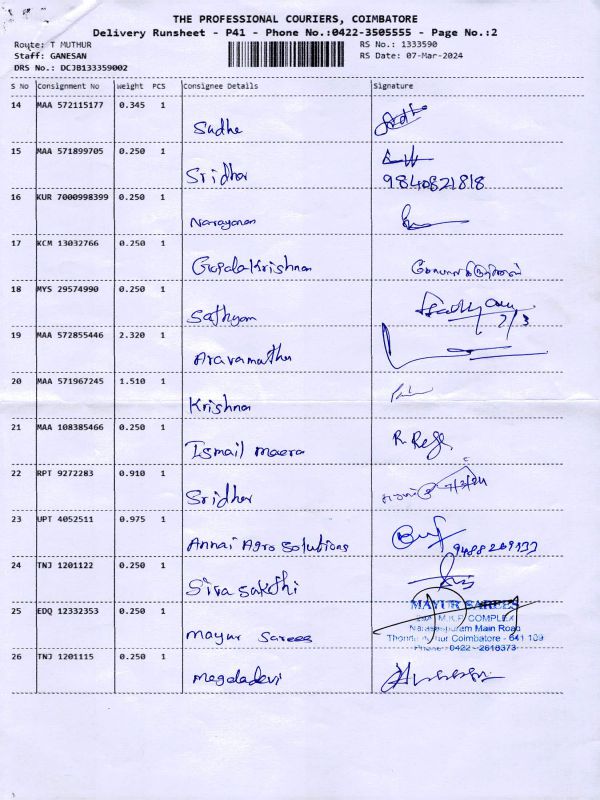 THE PROFESSIONAL COURIERS, COIMBATORE
Delivery Runsheet - P41 - Phone No.:0422-3505555 - Page No.:2
Route: T MUTHUR RS No.: 1333590
Staff: GANESAN RS Date: 07-Mar-2024
DRS No.: DCJB133359002
S No Consignment No weight PCS Consignee Details Signature
14 MAA 572115177 0.345 1
Sudha
15 MAA 571899705 0.250 1
Sridhar 9840821818
16 KUR 7000998399 0.250 1
Narayanan
17 KCM 13032766 0.250 1
Gopalakrishnan
18 MYS 29574990 0.250 1
Sathyam
7/3
19 MAA 572855446 2.320 1
Aravamuthu
20 MAA 571967245 1.510 1
Krishnan
21 MAA 108385466 0.250 1
Ismail meera
22 RPT 9272283 0.910 1
Sridhar 7/3/24
23 UPT 4052511 0.975 1
Annai Agro Solutions
24 TNJ 1201122 0.250 1
Siva sakthi
25 EDQ 12332353 0.250 1 MAYUR SAREES
M.K.P. COMPLEX
mayur Sarees Main Road
Coimbatore - 641 109
Phone: 0422 - 2618373
26 TNJ 1201115 0.250 1
Megaladevi